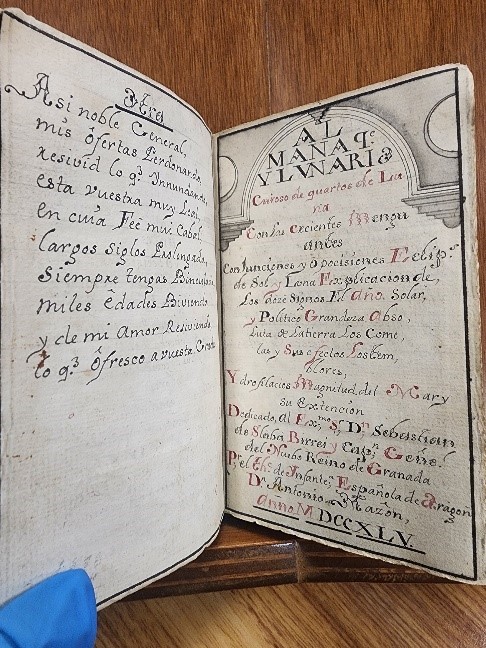 Otra
Asi noble General,
mis ofertas Perdonando,
resivid lo q.ᵉ Ynnundando,
esta vuestra muy Leal,
en cuia Feé mui Cabal,
largos siglos Prolongado,
Siempre tengas
miles Edades Biviendo
y de mi Amor Resiviendo
lo q.ᵉ ôfresco a vuesta
AL
MANAq.ᵉ
Y LVNARIO
Curioso de quartos de Lu
na
Con los Crcientes Mengu
antes
Conjunciones y oposisiones Eclip.ˢ
de Sol y Luna Explicacion de,
Los doze Signos El Año. Solar,
y Politico Grandeza Abso,
luta de Latierra Los Come,
tas y Sus efectos Lostem,
blores,
Ydrofilacios Magnitud, del Mar y
su Extencion
Dedicado, al Ex,ᵐᵒ S.ʳ Dⁿ Sebastian
de Slaba Birrei y Cap.ⁿ Gene.ˡ
del Nuebo Reino de Granada
P.ʳ el de Infante.ˢ Española de Aragon
D.ⁿ Antonio Mazôn,
Anno. MDCCXLV.